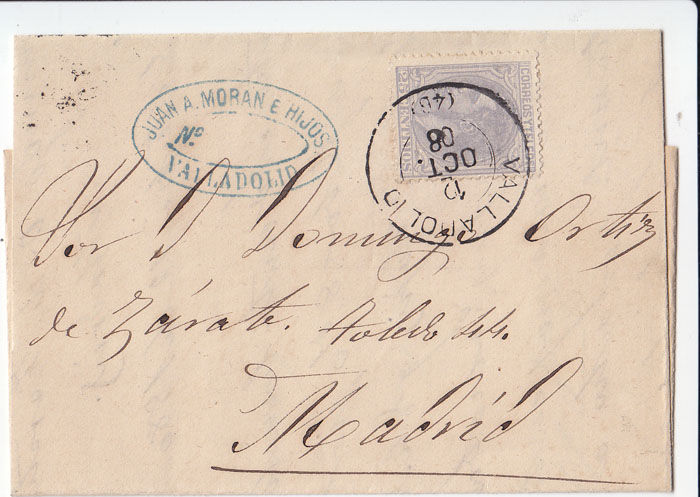 JUAN A. MORAN E HIJOS.
Nº
VALLADOLID
CORREOS Y
25 CENTIMOS
VALLADOLID
12
OCT.
80
(46)
Sor D. Domingo Ortiz
de Zárate. Toledo 44.
Madrid